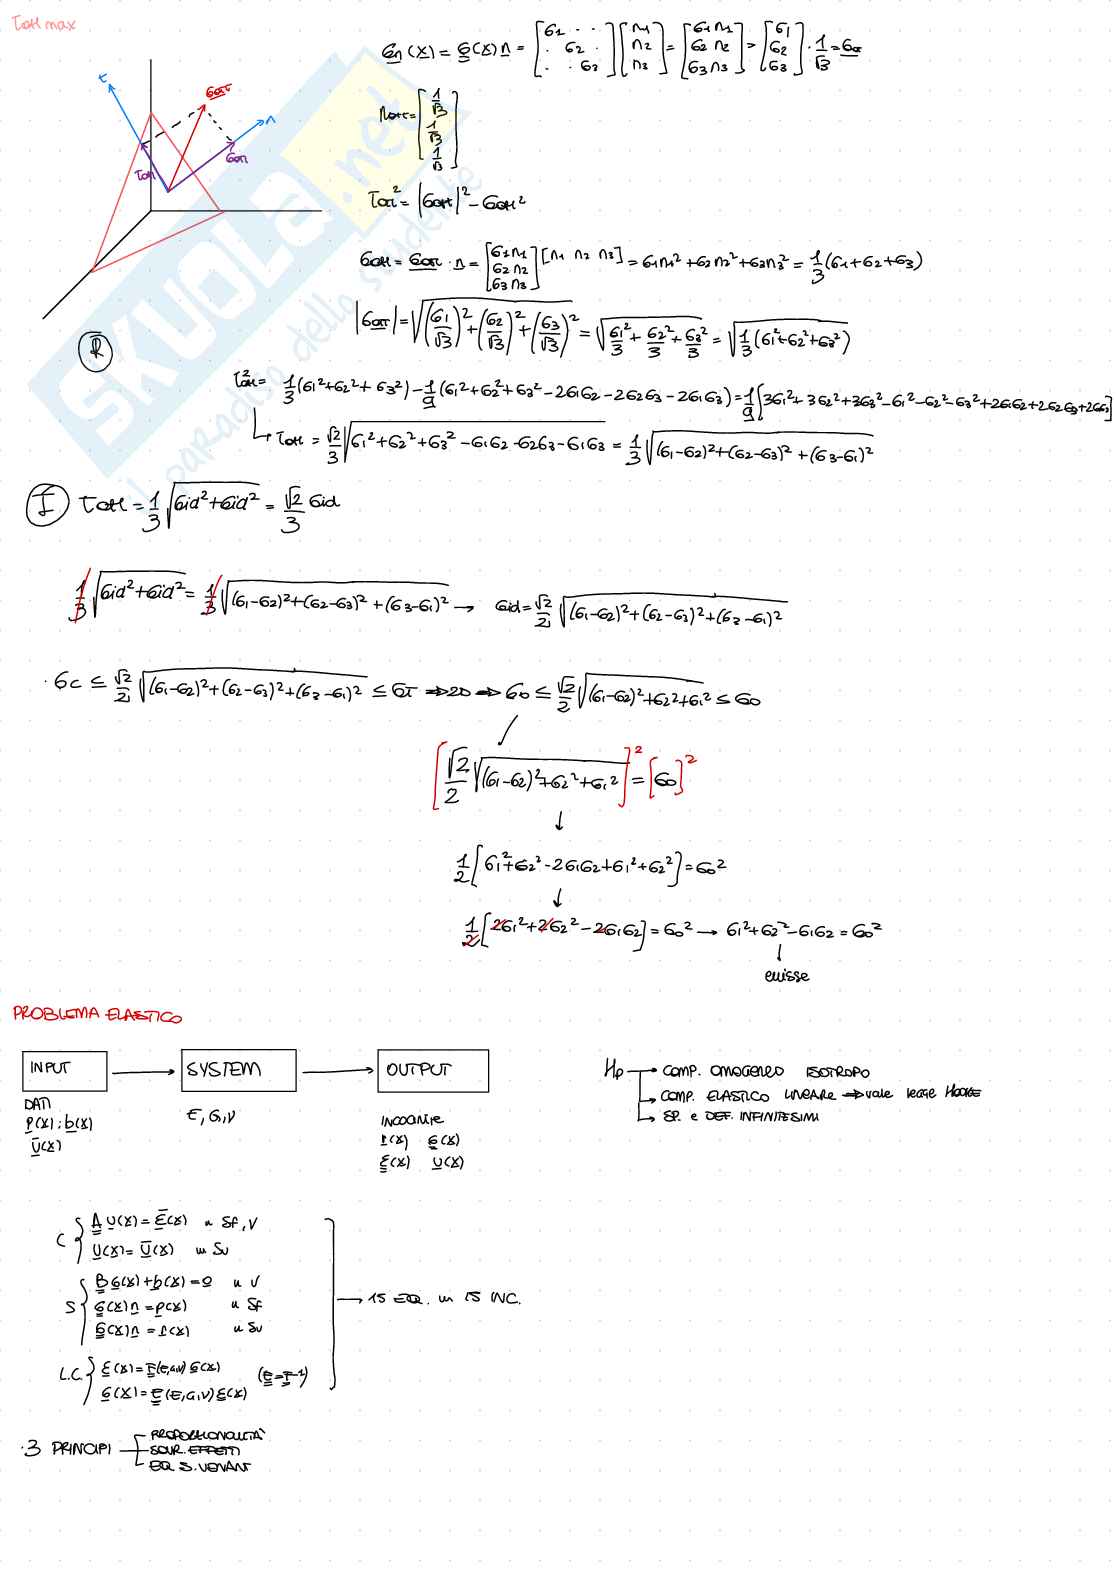 τott max
σn(x) = σ(x) n = [σ1 · · ; · σ2 · ; · · σ3] [n1 n2 n3] = [σ1n1 σ2n2 σ3n3] = [σ1 σ2 σ3] · 1/√3 = σott
nott = [1/√3 1/√3 1/√3]
t
σott
n
σott
τott
τott² = |σott|² - σott²
σott = σott · n = [σ1n1 σ2n2 σ3n3] [n1 n2 n3] = σ1n1² + σ2n2² + σ3n3² = 1/3 (σ1+σ2+σ3)
|σott| = √((σ1/√3)² + (σ2/√3)² + (σ3/√3)²) = √(σ1²/3 + σ2²/3 + σ3²/3) = √(1/3 (σ1²+σ2²+σ3²))
R
τott² = 1/3 (σ1²+σ2²+σ3²) - 1/9 (σ1²+σ2²+σ3² - 2σ1σ2 - 2σ2σ3 - 2σ1σ3) = 1/9 [3σ1²+3σ2²+3σ3² - σ1² - σ2² - σ3² + 2σ1σ2 + 2σ2σ3 + 2σ1σ3]
τott = √2/3 √(σ1²+σ2²+σ3² - σ1σ2 - σ2σ3 - σ1σ3) = 1/3 √((σ1-σ2)²+(σ2-σ3)²+(σ3-σ1)²)
I τott = 1/3 √(σid²+σid²) = √2/3 σid
1/3 √(σid²+σid²) = 1/3 √((σ1-σ2)²+(σ2-σ3)²+(σ3-σ1)²) → σid = √2/2 √((σ1-σ2)²+(σ2-σ3)²+(σ3-σ1)²)
· σc ≤ √2/2 √((σ1-σ2)²+(σ2-σ3)²+(σ3-σ1)²) ≤ σt ⇒ 2D ⇒ σo ≤ √2/2 √((σ1-σ2)²+σ2²+σ1²) ≤ σo
[√2/2 √((σ1-σ2)²+σ2²+σ1²)]² = [σo]²
↓
1/2 [σ1²+σ2² - 2σ1σ2 + σ1² + σ2²] = σo²
↓
1/2 [2σ1²+2σ2² - 2σ1σ2] = σo² → σ1²+σ2² - σ1σ2 = σo²
ellisse
PROBLEMA ELASTICO
INPUT → SYSTEM → OUTPUT
DATI
p(x); b(x)
U(x)
E, G, ν
INCOGNITE
r(x) σ(x)
ε(x) U(x)
Hp → COMP. OMOGENEO ISOTROPO
→ COMP. ELASTICO LINEARE ⇒ vale legge HOOKE
→ SP. e DEF. INFINITESIMI
C { A U(x) = ε(x) in Sf, V
U(x) = U(x) in Su
S { B σ(x) + b(x) = 0 in V
σ(x) n = p(x) in Sf
σ(x) n = r(x) in Su
→ 15 EQ. in 15 INC.
L.C. { ε(x) = F(E,G,ν) σ(x)
σ(x) = E(E,G,ν) ε(x) (E = F⁻¹)
· 3 PRINCIPI
PROPORZIONALITÀ
SOVR. EFFETTI
EQ. S. VENANT
SKUOLA.net
il paradiso dello studente